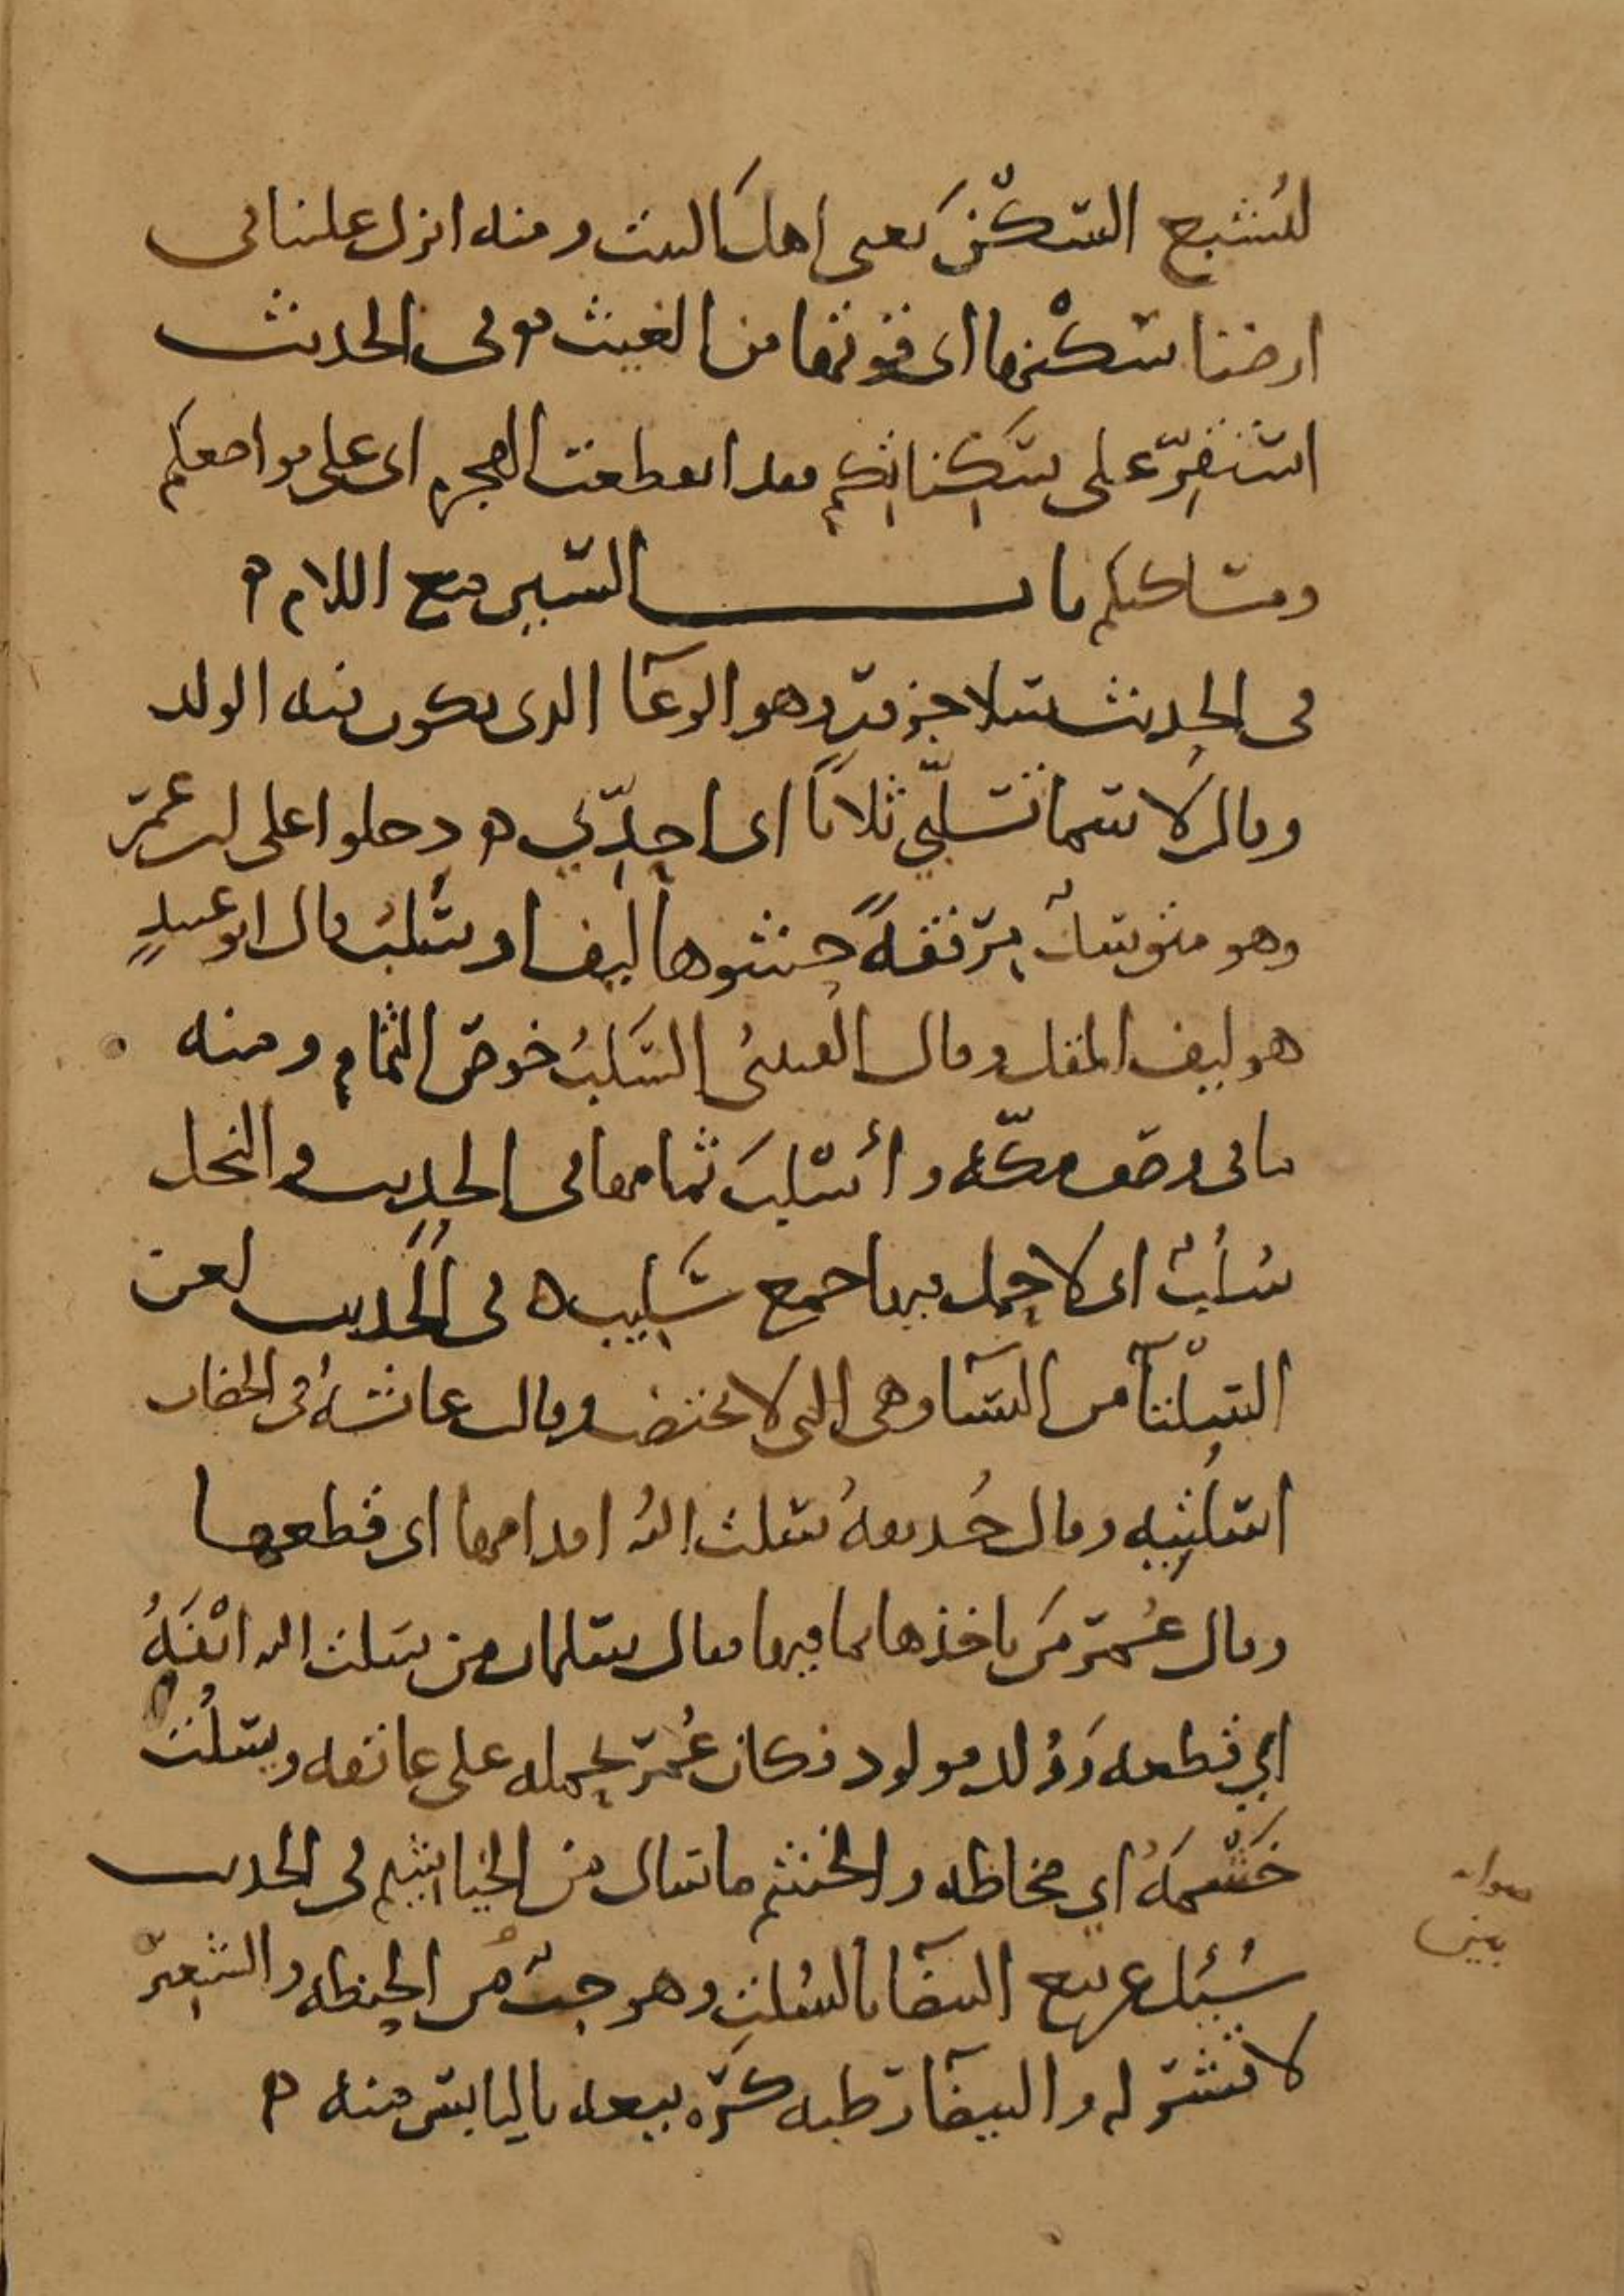 لتشبع السكن يعني اهل البيت ومنه انزل علينا في
ارضنا سكنها اي قوتها من الغيث ه وفي الحديث
استقر على سكناتكم فقد انقطعت الهجرة اي على مواضعكم
ومساكنكم باب السين مع اللام ه
في الحديث سلا جزور وهو الوعآ الذي يكون فيه الولد
وقال لاسما تسلبي ثلاثا اي احدي ه دخلوا على ابن عمر
وهو متوسد مرفقة حشوها ليف او سلب قال ابو عبيد
هو ليف المقل وقال القتيبي السلب خوص الثمام ومنه
في وصف مكة وأسلب ثمامها في الحديث والنخل
سلب اي لا حمل بها جمع سليب ه في الحديث لعن
السلتآ من النسآ وهي التي لا تختضب وقالت عائشة في الخضاب
اسلتيه وقال حذيفة سلت الله اقدامها اي قطعها
وقال عمر من ياخذها بما فيها فقال سلمان من سلت الله انفه
اي قطعه وولد مولود فكان عمر يحمله على عاتقه ويسلت
خشمه اي مخاطه والخشم ماسال من الخياشيم في الحديث
سئل عن بيع البيضآ بالسلت وهو حب من الحنطه والشعير
لا قشر له والبيضآ رطبه كره بيعه باليابس منه ه
صوابه
بين